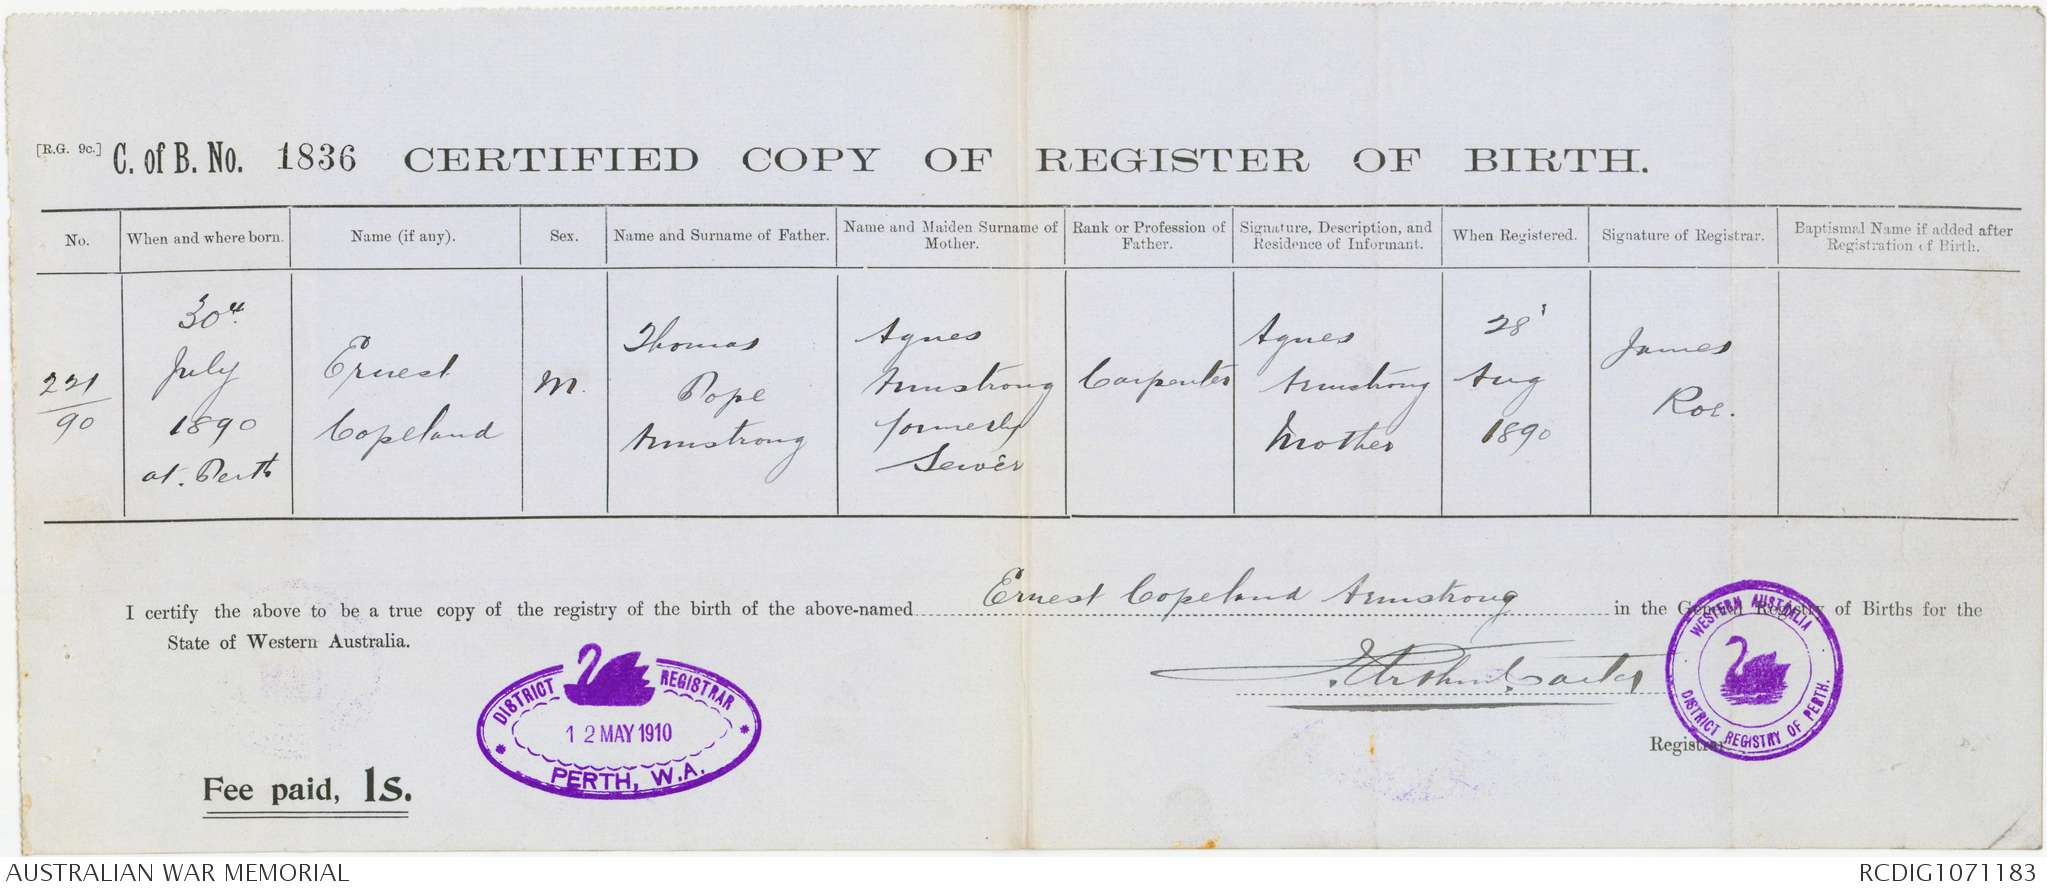 [R.G. 9c.] C. of B. No. 1836 CERTIFIED COPY OF REGISTER OF BIRTH.
No.
When and where born.
Name (if any).
Sex.
Name and Surname of Father.
Name and Maiden Surname of
Mother.
Rank or Profession of
Father.
Signature, Description, and
Residence of Informant.
When Registered.
Signature of Registrar.
Baptismal Name if added after
Registration of Birth.
221
90
30th
July
1890
at Perth
Ernest
Copeland
M.
Thomas
Pope
Armstrong
Agnes
Armstrong
formerly
Carpenter
Agnes
Armstrong
Mother
28
Aug
1890
James
Roe.
I certify the above to be a true copy of the registry of the birth of the above-named Ernest Copeland Armstrong in the General Registry of Births for the
State of Western Australia.
DISTRICT REGISTRAR
12 MAY 1910
PERTH, W.A.
WESTERN AUSTRALIA
DISTRICT REGISTRY OF PERTH.
Registrar
Fee paid, 1s.
AUSTRALIAN WAR MEMORIAL
RCDIG1071183